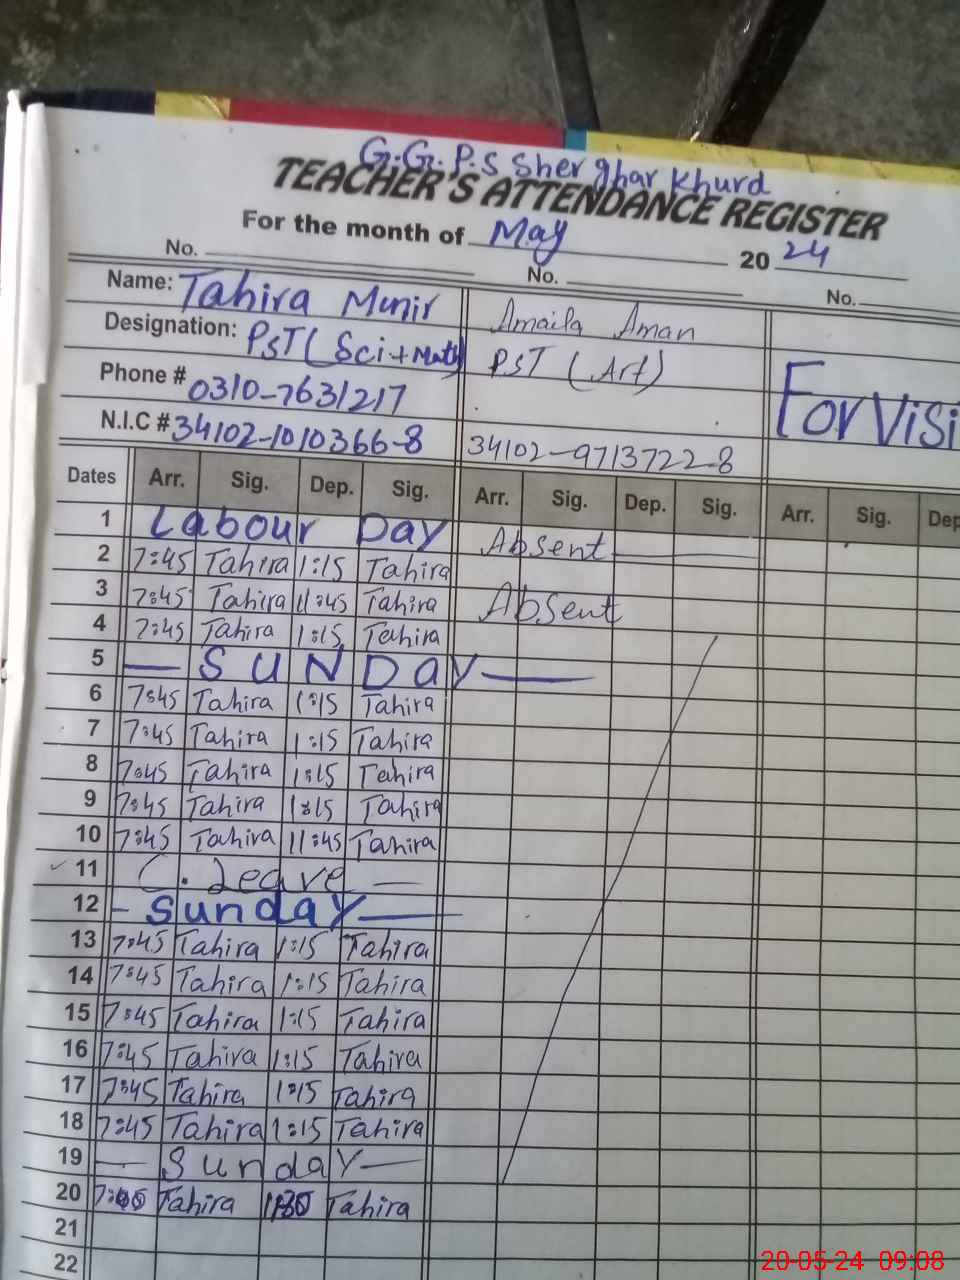 G.G.P.S Sher ghar Khurd
TEACHER'S ATTENDANCE REGISTER
For the month of May 2024
No. No. No.
Name: Tahira Munir Amaila Aman
Designation: PST (Sci+Math) PST (Art)
Phone # 0310-7631217 For Visi
N.I.C # 34102-1010366-8 34102-9713722-8
Dates Arr. Sig. Dep. Sig. Arr. Sig. Dep. Sig. Arr. Sig. Dep
1 Labour Day Absent
2 7:45 Tahira 1:15 Tahira
3 7:45 Tahira 11:45 Tahira Absent
4 7:45 Tahira 1:15 Tahira
5 SUNDAY
6 7:45 Tahira 1:15 Tahira
7 7:45 Tahira 1:15 Tahira
8 7:45 Tahira 1:15 Tahira
9 7:45 Tahira 1:15 Tahira
10 7:45 Tahira 11:45 Tahira
11 C. Leave
12 Sunday
13 7:45 Tahira 1:15 Tahira
14 7:45 Tahira 1:15 Tahira
15 7:45 Tahira 1:15 Tahira
16 7:45 Tahira 1:15 Tahira
17 7:45 Tahira 1:15 Tahira
18 7:45 Tahira 1:15 Tahira
19 Sunday
20 Tahira Tahira
21
22
20-05-24 09:08